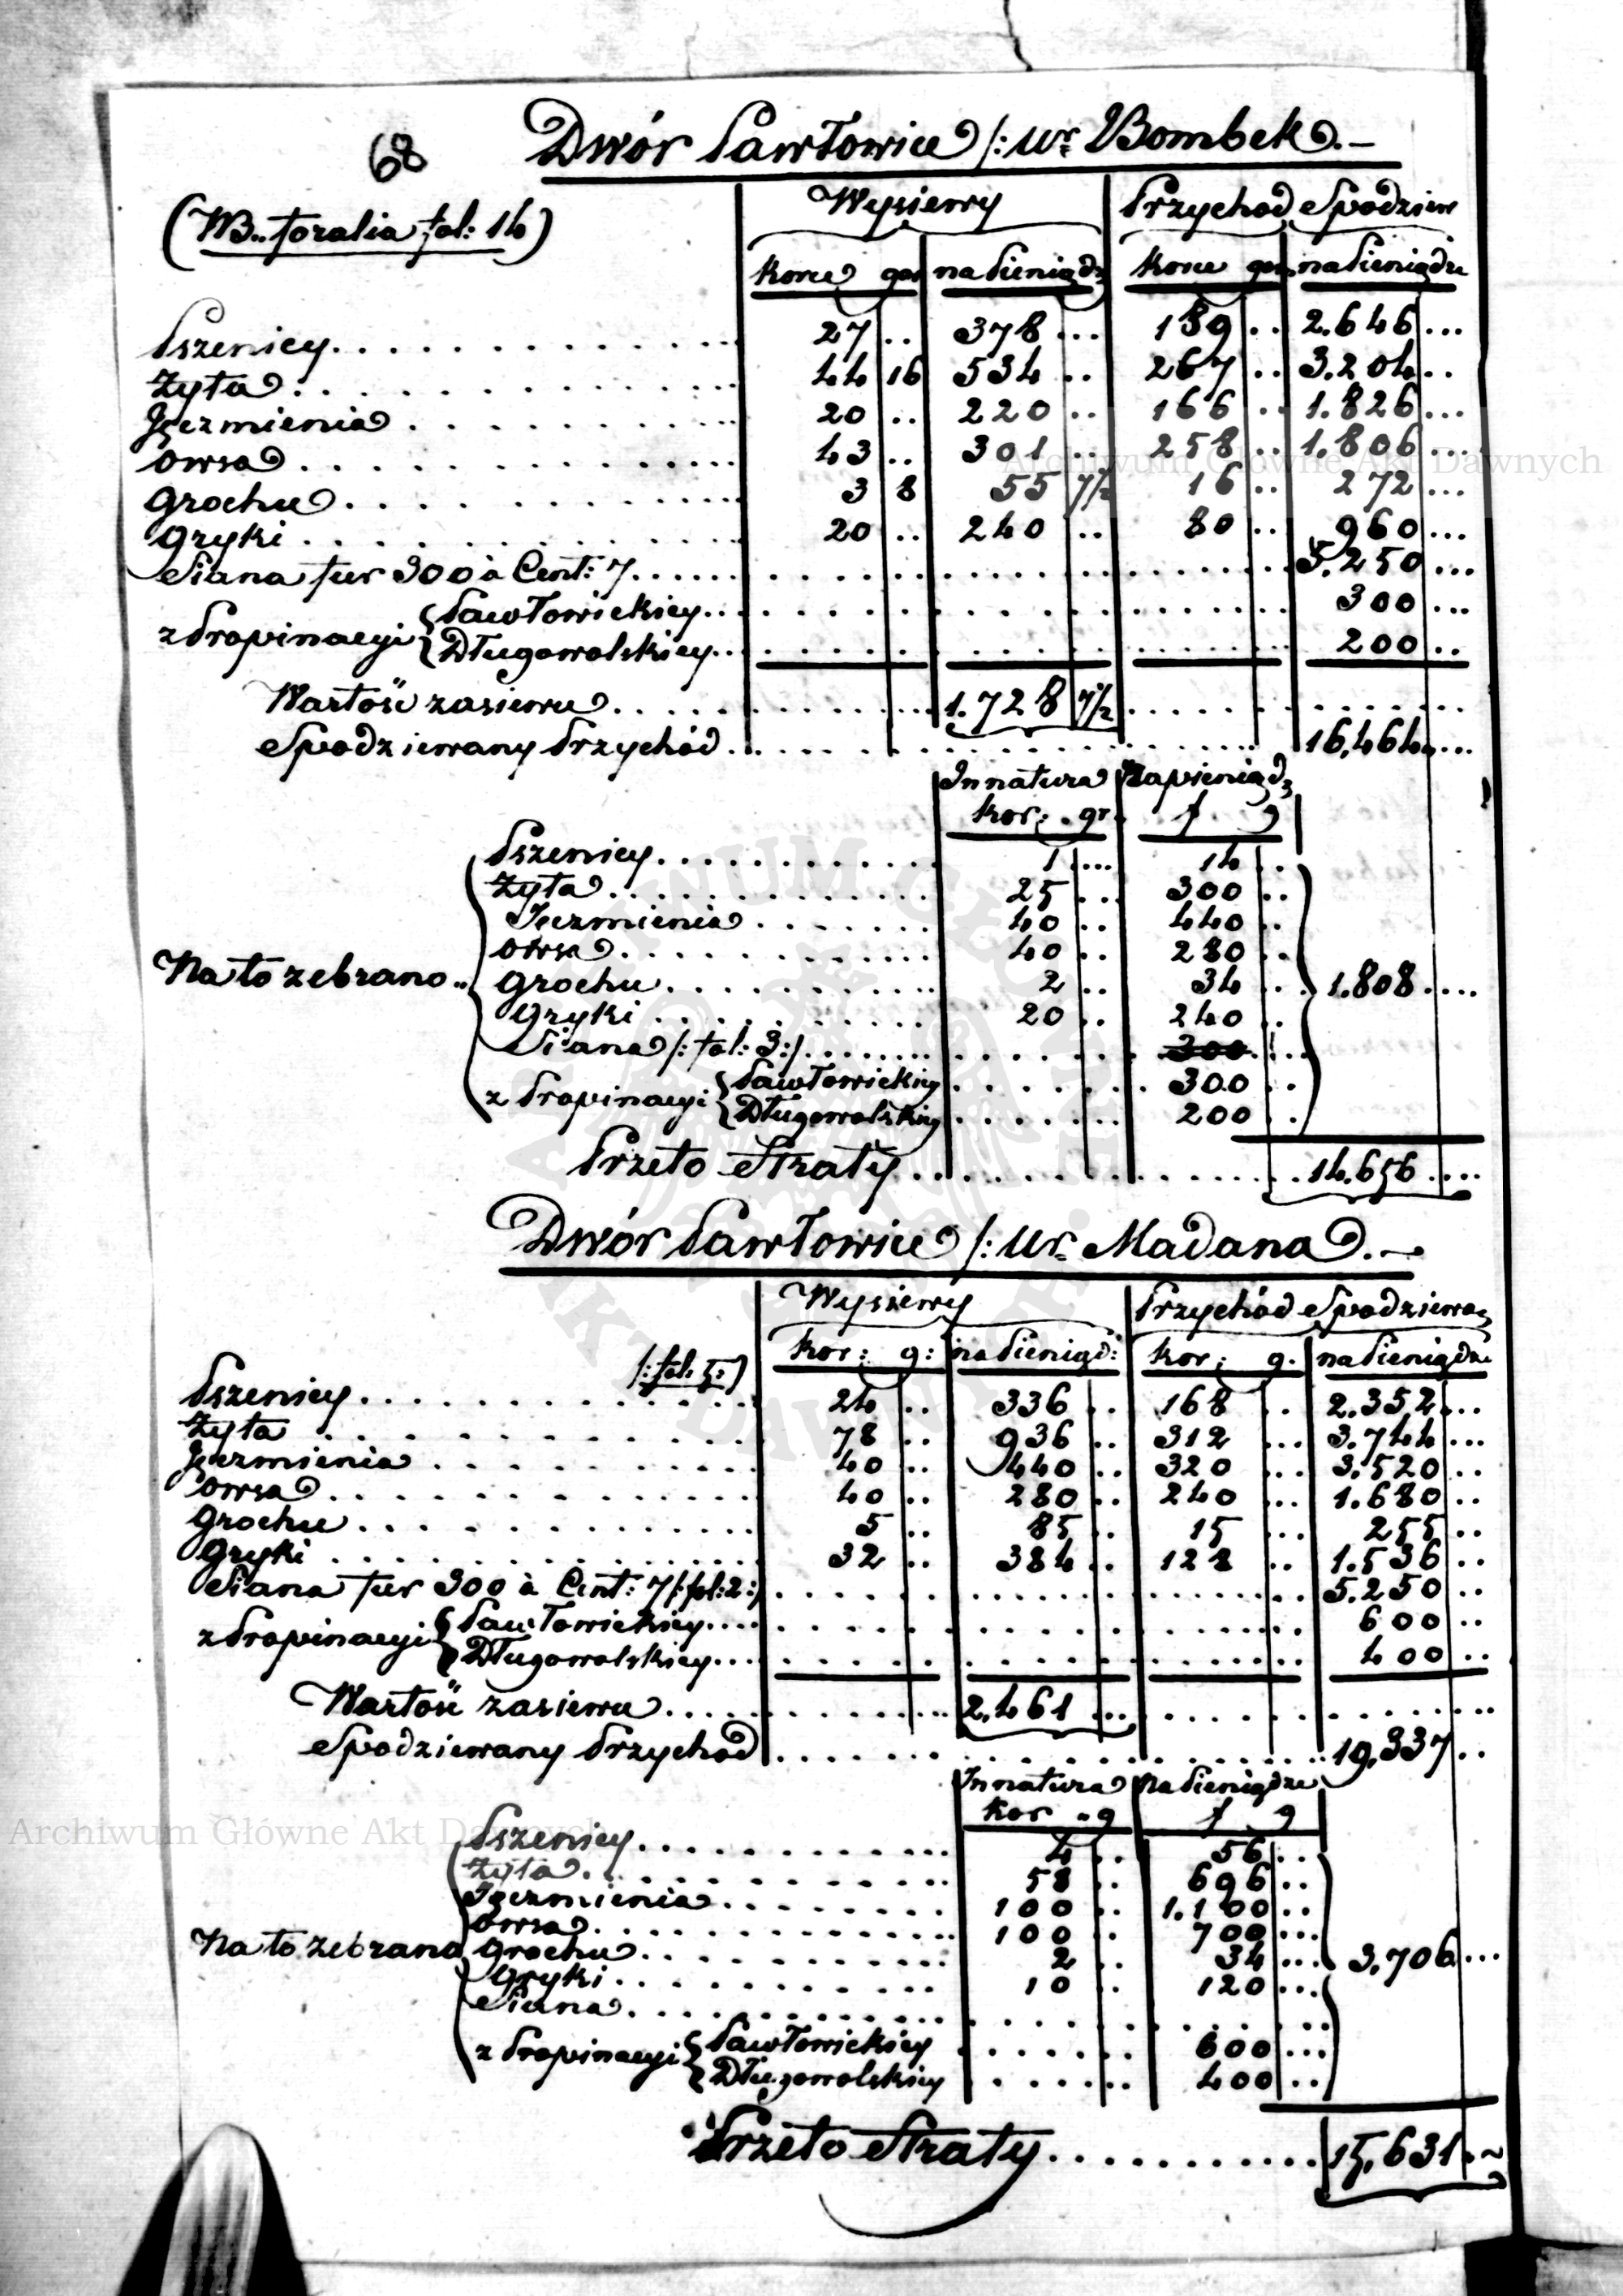 68 Dwór Pawłowice /: Ur. Bombek. –
(NB.. foralia fol: 14)
Wysiewy Przychód Spodziew
korce gar na Pieniądz korce gar na Pieniądze
Pszenicy 27 .. 378 ... 189 .. 2.646 ...
Żyta 44 16 534 .. 267 .. 3.204 ..
Jęczmienia 20 .. 220 .. 166 .. 1.826 ...
Owsa 43 .. 301 .. 258 .. 1.806 ...
Grochu 3 8 55 7/2 16 .. 272 ...
Gryki 20 .. 240 .. 80 .. 960 ...
Siana fur 300 à Cent: 7 5.250 ...
z Propinacyi { Pawłowickiey 300 ...
Długowolskiey 200 ..
Wartość zasiewu 1.728 7/2
Spodziewany Przychód 16,464 ...
In natura Na pieniądz
kor: gr. f g
Pszenicy 1 ... 14 ..
Żyta 25 ... 300 ..
Jęczmienia 40 .. 440 ..
Owsa 40 .. 280 ..
Na to zebrano .. Grochu 2 .. 34 .. 1.808 ....
Gryki 20 .. 240 ..
Siana /: fol: 3:/ 300
z Propinacyi { Pawłowickiey 300 ..
Długowolskiey 200 ..
Przeto Straty 14.656 ....
Dwór Pawłowice /: Ur. Madana. –
Wysiewy Przychód Spodziewa
/: fol. 5:) kor: g: na Pieniądz: kor: g. na Pieniądze
Pszenicy 24 .. 336 .. 168 .. 2.352 ...
Żyta 78 .. 936 .. 312 ... 3.744 ...
Jęczmienia 40 .. 440 .. 320 ... 3.520 ..
Owsa 40 .. 280 .. 240 ... 1.680 ..
Grochu 5 .. 85 .. 15 ... 255 ..
Gryki 32 .. 384 .. 128 .. 1.536 ..
Siana fur 300 à Cent: 7 /: fol: 2:) 5.250 ..
z Propinacyi { Pawłowickiey 600 ..
Długowolskiey 400 ..
Wartość zasiewu 2.461 ...
Spodziewany Przychód 19,337 ..
In natura Na Pieniądze
kor g f g
Pszenicy 4 .. 56 ..
Żyta 58 .. 696 ..
Jęczmienia 100 .. 1.100 ..
Owsa 100 .. 700 ...
Na to zebrano Grochu 2 .. 34 ... 3,706 ...
Gryki 10 .. 120 ...
Siana
z Propinacyi { Pawłowickiey 600 ...
Długowolskiey 400 ..
Przeto Straty 15,631
Archiwum Główne Akt Dawnych
Archiwum Główne Akt Dawnych